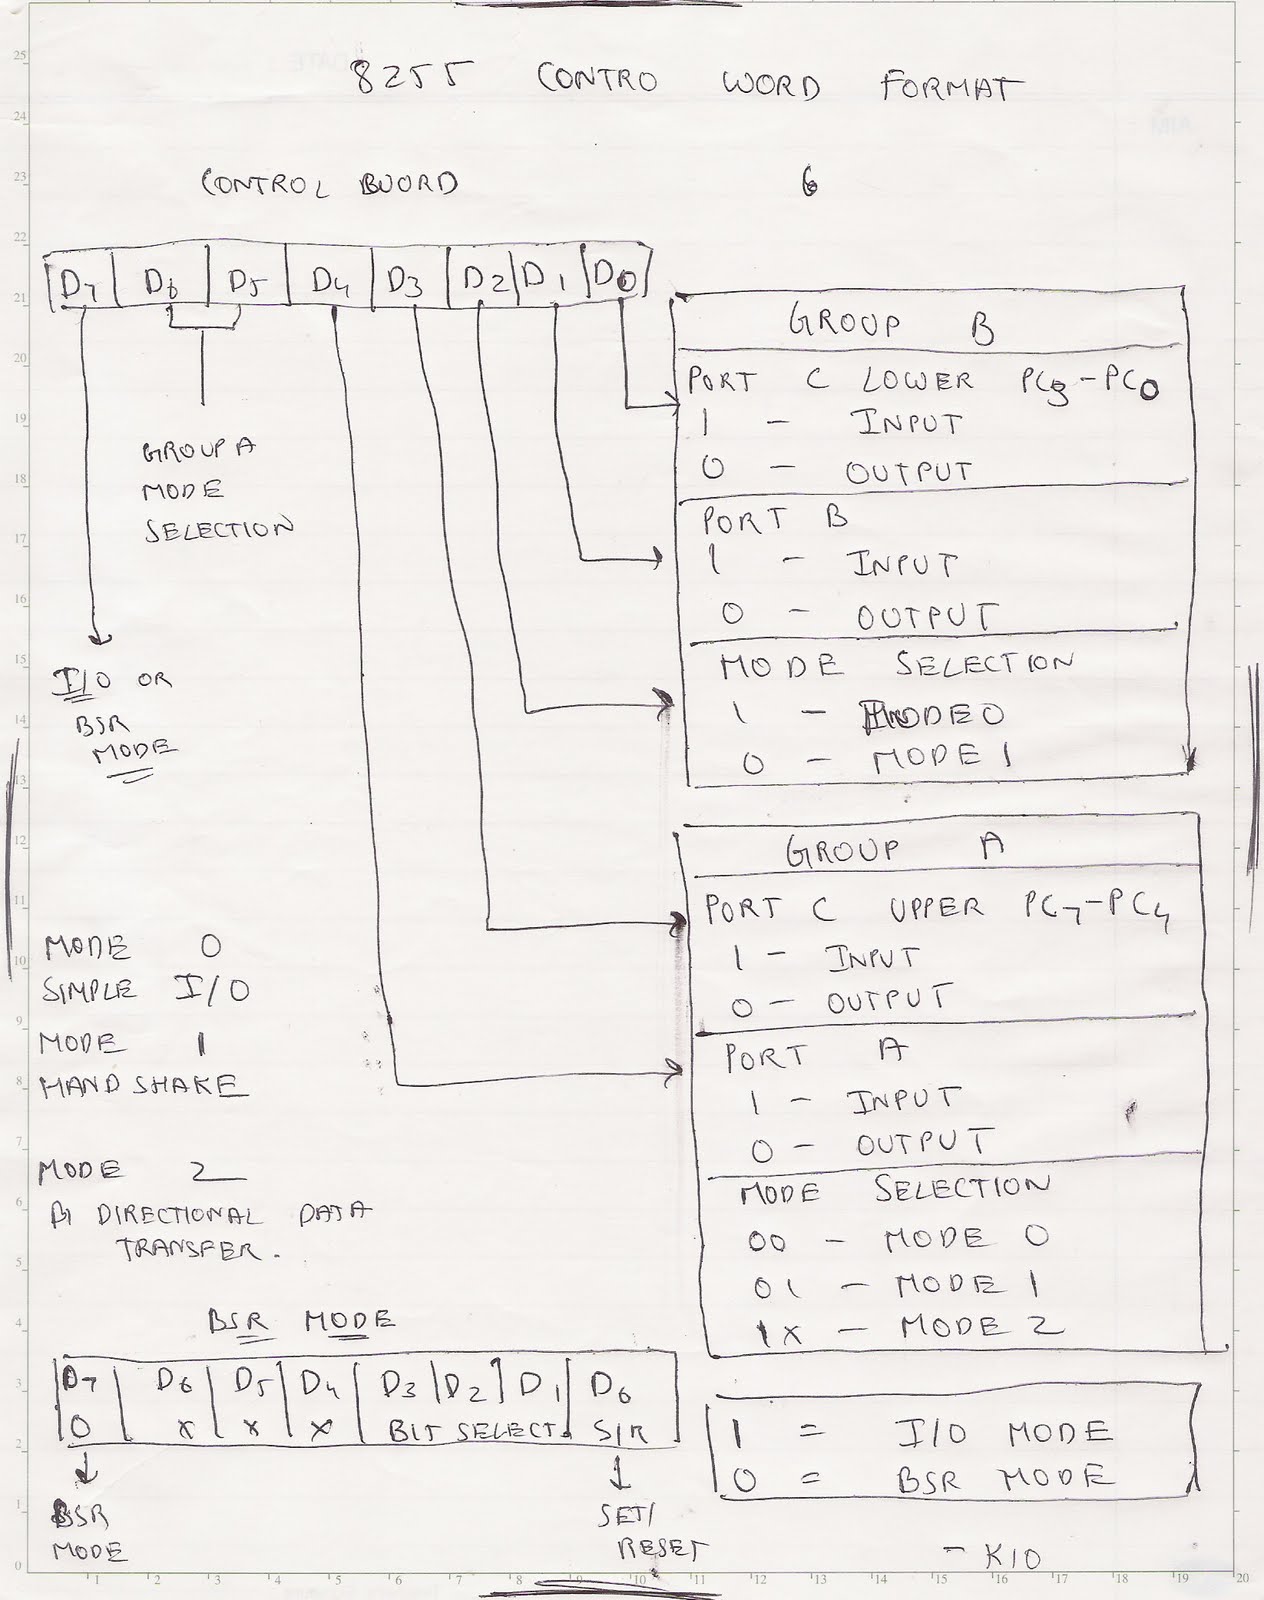 8255 CONTRO WORD FORMAT
CONTROL BUORD 6
D7 D6 D5 D4 D3 D2 D1 D0
GROUP A
MODE
SELECTION
I/O OR
BSR
MODE
GROUP B
PORT C LOWER PC3-PC0
1 - INPUT
0 - OUTPUT
PORT B
1 - INPUT
0 - OUTPUT
MODE SELECTION
1 - MODE 0
0 - MODE 1
GROUP A
PORT C UPPER PC7-PC4
1 - INPUT
0 - OUTPUT
PORT A
1 - INPUT
0 - OUTPUT
MODE SELECTION
00 - MODE 0
01 - MODE 1
1X - MODE 2
MODE 0
SIMPLE I/O
MODE 1
HANDSHAKE
MODE 2
BI DIRECTIONAL DATA
TRANSFER.
BSR MODE
D7 D6 D5 D4 D3 D2 D1 D0
0 X X X BIT SELECT S/R
BSR
MODE
SET/
RESET
1 = I/O MODE
0 = BSR MODE
- K10
25
24
23
22
21
20
19
18
17
16
15
14
13
12
11
10
9
8
7
6
5
4
3
2
1
0
1 2 3 4 5 6 7 8 9 10 11 12 13 14 15 16 17 18 19 20